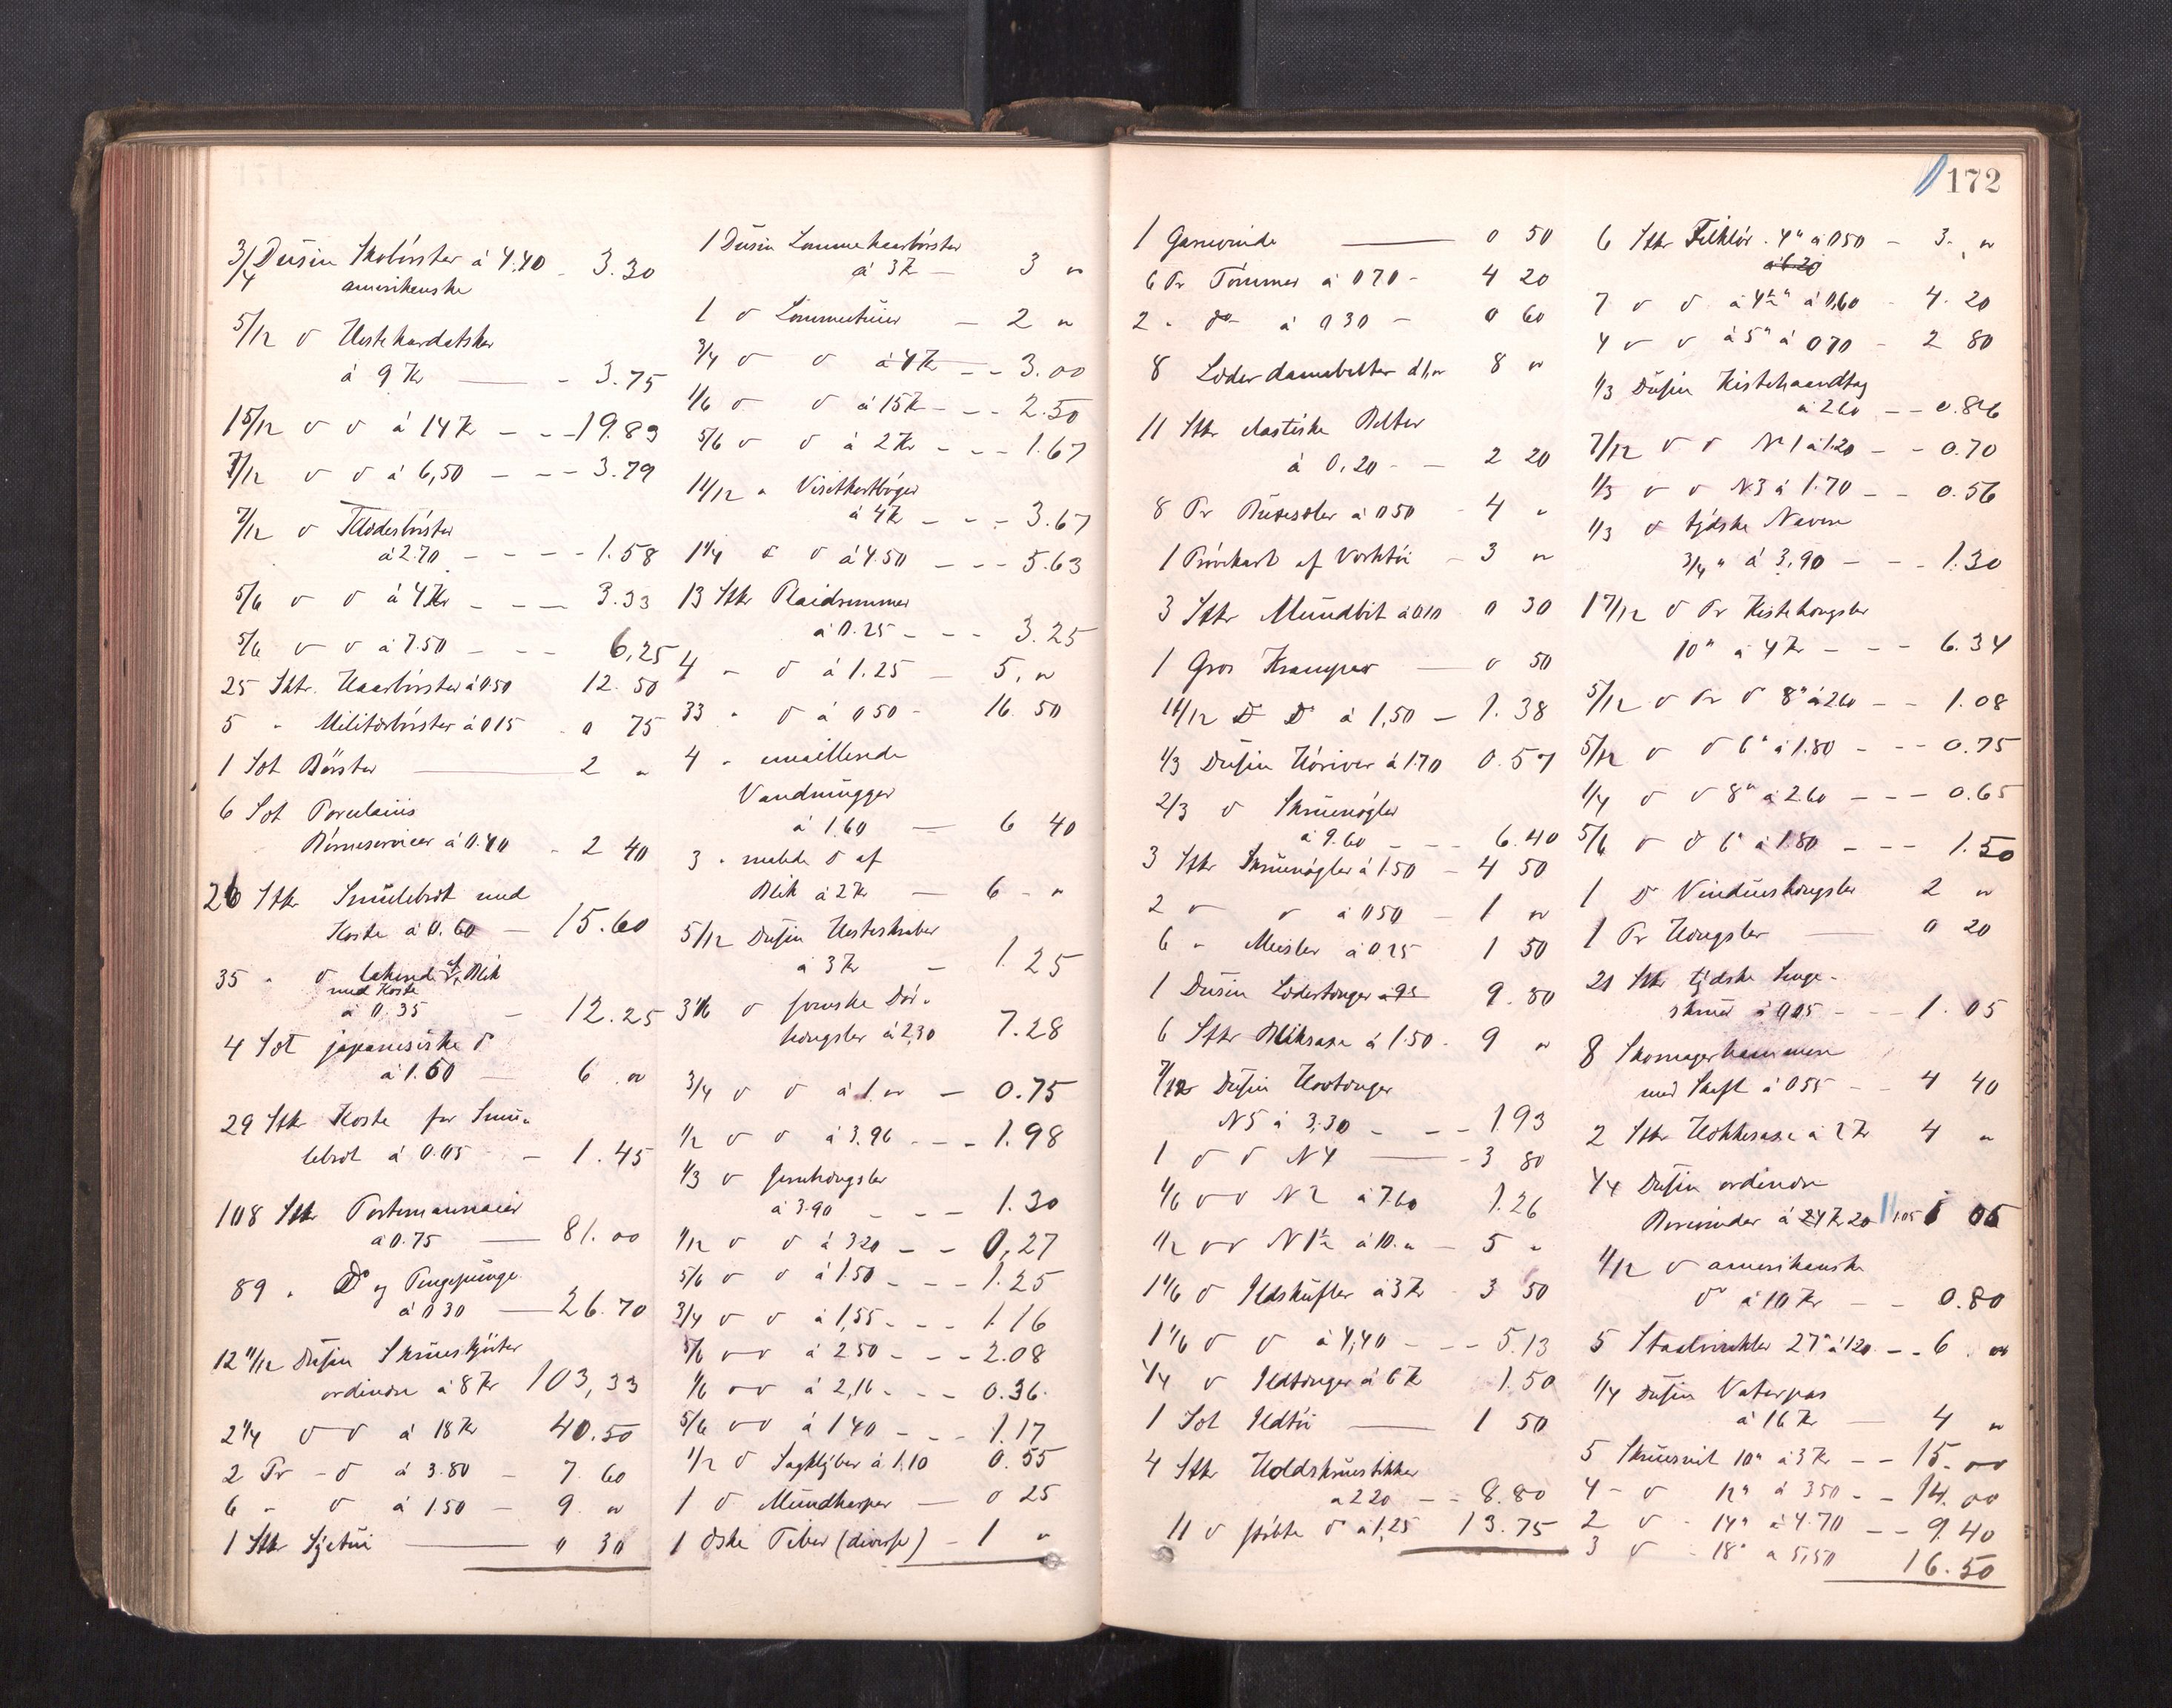 3/4 Dusin Skobörster á 4.40 - 3.30
amerikanske
5/12 d Hestekardæsker
á 9 Kr — - 3.75
1 5/12 d d á 14 Kr - - - 19.83
7/12 d d á 6,50 - - - 3.79
7/12 d Klædesbörster
á 2.70 - - - - 1.58
5/6 d d á 4 Kr - - - 3.33
5/6 d d á 7.50 - - - 6,25
25 Stkr. Haarbörster á 0 50 12. 50
5 " Militærbörster á 0 15 - 0 75
1 Sæt Börster — 2 "
6 Sæt Porcelains
Börneservicer á 0.40 - 2 40
26 Stkr Smulebræt med
Koste á 0.60 — 15.60
35 " d lakered af Blik
med Koste
á 0.35 - 12.25
4 Sæt japanesiske d
á 1.50 — 6 "
29 Stkr Koste for Smu-
lebræt á 0.05 - 1.45
108 Stkr Portemonnaier
á 0.75 — 81.00
89 " Do og Pengepunge
á 0 30 — 26.70
12 11/12 Dusin Skruestykker
ordinære á 8 Kr 103,33
2 1/4 d d á 18 Kr 40.50
2 Pr - d á 3.80 - 7. 60
6 " d á 1 50 - 9. "
1 Stk Syetui — 0 30
1 Dusin Lommehaarbörster
á 3 Kr — 3 "
1 d Lommetuier — 2 "
3/4 d d á 4 Kr - - 3.00
1/6 d d á 15 Kr - - - 2.50
5/6 d d á 2 Kr - - - 1.67
11/12 " Visitkortbøger
á 4 Kr - - - 3.67
1 1/4 d d á 4.50 - - - 5.63
13 Stkr Plaidremmer
á 0.25 - - - 3.25
4 - d á 1.25 - 5, "
33 " d á 0 50 - 16. 50
4 " emaillerede
Vandmugger
á 1.60 — 6 40
3 " malede d af
Blik á 2 Kr — 6 - "
5/12 Dusin Hesteskraber
á 3 Kr - 1. 25
3 1/6 d franske Dör-
hængsler á 2,30 7.28
3/4 d d á 1 " — 0.75
1/2 d d á 3.96 - - - 1.98
1/3 d Jernhængsler
á 3.90 - - - 1.30
1/12 d d á 3 20 - - 0,27
5/6 d d á 1.50 - - - 1.25
3/4 d d á 1,55 - - - 1.16
5/6 d d á 2 50 - - - 2.08
1/6 d d á 2,16 - - - 0.36
5/6 d d á 1 40 - - - 1.17
1/2 d Sagklyver á 1,10 0.55
1 d Mundharper — 0 25
1 Æske Piber (diverse) - 1 "
172
1 Garnvinde — 0 50
6 Pr Tömmer á 0 70 - 4 20
2 " do á 0 30 - 0 60
8 Læder damebelter á 1, " 8 "
11 Stkr elastiske Belter
á 0,20 - - 2 20
8 Pr Buxesæler á 0 50 - 4 "
1 Prövekort af Værktöi - 3 "
3 Stkr Mundbit á 0.10 0 30
1 Gros Kramper — 0 50
11/12 D Do á 1,50 - 1.38
1/3 Dusin Höriver á 1.70 0.57
2/3 d Skruenögler
á 9.60 - - - 6.40
3 Stkr Skruenögler á 1.50 - 4 50
2 d d á 0 50 - 1 "
6 " Meisler á 0.25 1 50
1 Dusin Lædertænger 9.80
6 Stkr Bliksaxe á 1.50 - 9 "
7/12 Dusin Hovtænger
N 5 á 3,30 - - - 1.93
1 d d N 4 — - 3 80
1/6 d d N 2 á 7.60 1.26
1/2 d d N 1 1/2 á 10. " - 5 "
1 1/6 d Ildskuffer á 3 Kr - 3 50
1 1/6 d d á 4,40 - - - 5.13
1/4 d Ildtænger á 6 Kr 1.50
1 Sæt Ildtöi — 1 50
4 Stkr Holdskruestikker
á 2 20 - - 8.80
11 d støbte do á 1,25 13.75
6 Stkr Filklør. 4" á 0 50 - 3. "
7 d d á 4 1/2" á 0,60 - 4. 20
4 d d á 5" á 0 70 - 2 80
1/3 Dusin Kistehaandtag
á 2 60 - - 0.86
7/12 d d N 1 á 1.20 - - 0.70
1/3 d d N 3 á 1.70 - - 0.56
1/3 d tydske Navere
3/4" á 3,90 - - - 1.30
1 7/12 d Pr Kistehængsler
10" á 4 Kr - - - 6.34
5/12 d Pr d 8" á 2 60 - - 1.08
5/12 d d 6" á 1.80 - - - 0.75
1/4 d d 8" á 2.60 - - - 0.65
5/6 d d 6" á 1.80 - - - 1.50
1 D Vindueshængsler 2 "
1 Pr Hængsler — 0 20
21 Stkr tydske Senge-
skruer á 0,05 - - - 1.05
8 Skomagerhammere
med Skaft á 0 55 - - 4 40
2 Stkr Hækkesaxe á 2 Kr 4 "
1/4 Dusin ordinære
Borvinder á 4 Kr 20 1.05
1/12 d amerikanske
do á 10 Kr - - 0.80
5 Staalvinkler 27" á 1 20 - - 6. "
1/4 Dusin Vaterpas
á 16 Kr — 4 "
5 Skruevit 10" á 3 Kr - - 15. 00
4 - d 12" á 3 50 - - 14. 00
2 d - 14" á 4.70 - - 9.40
3 d - 18" á 5,50 16.50